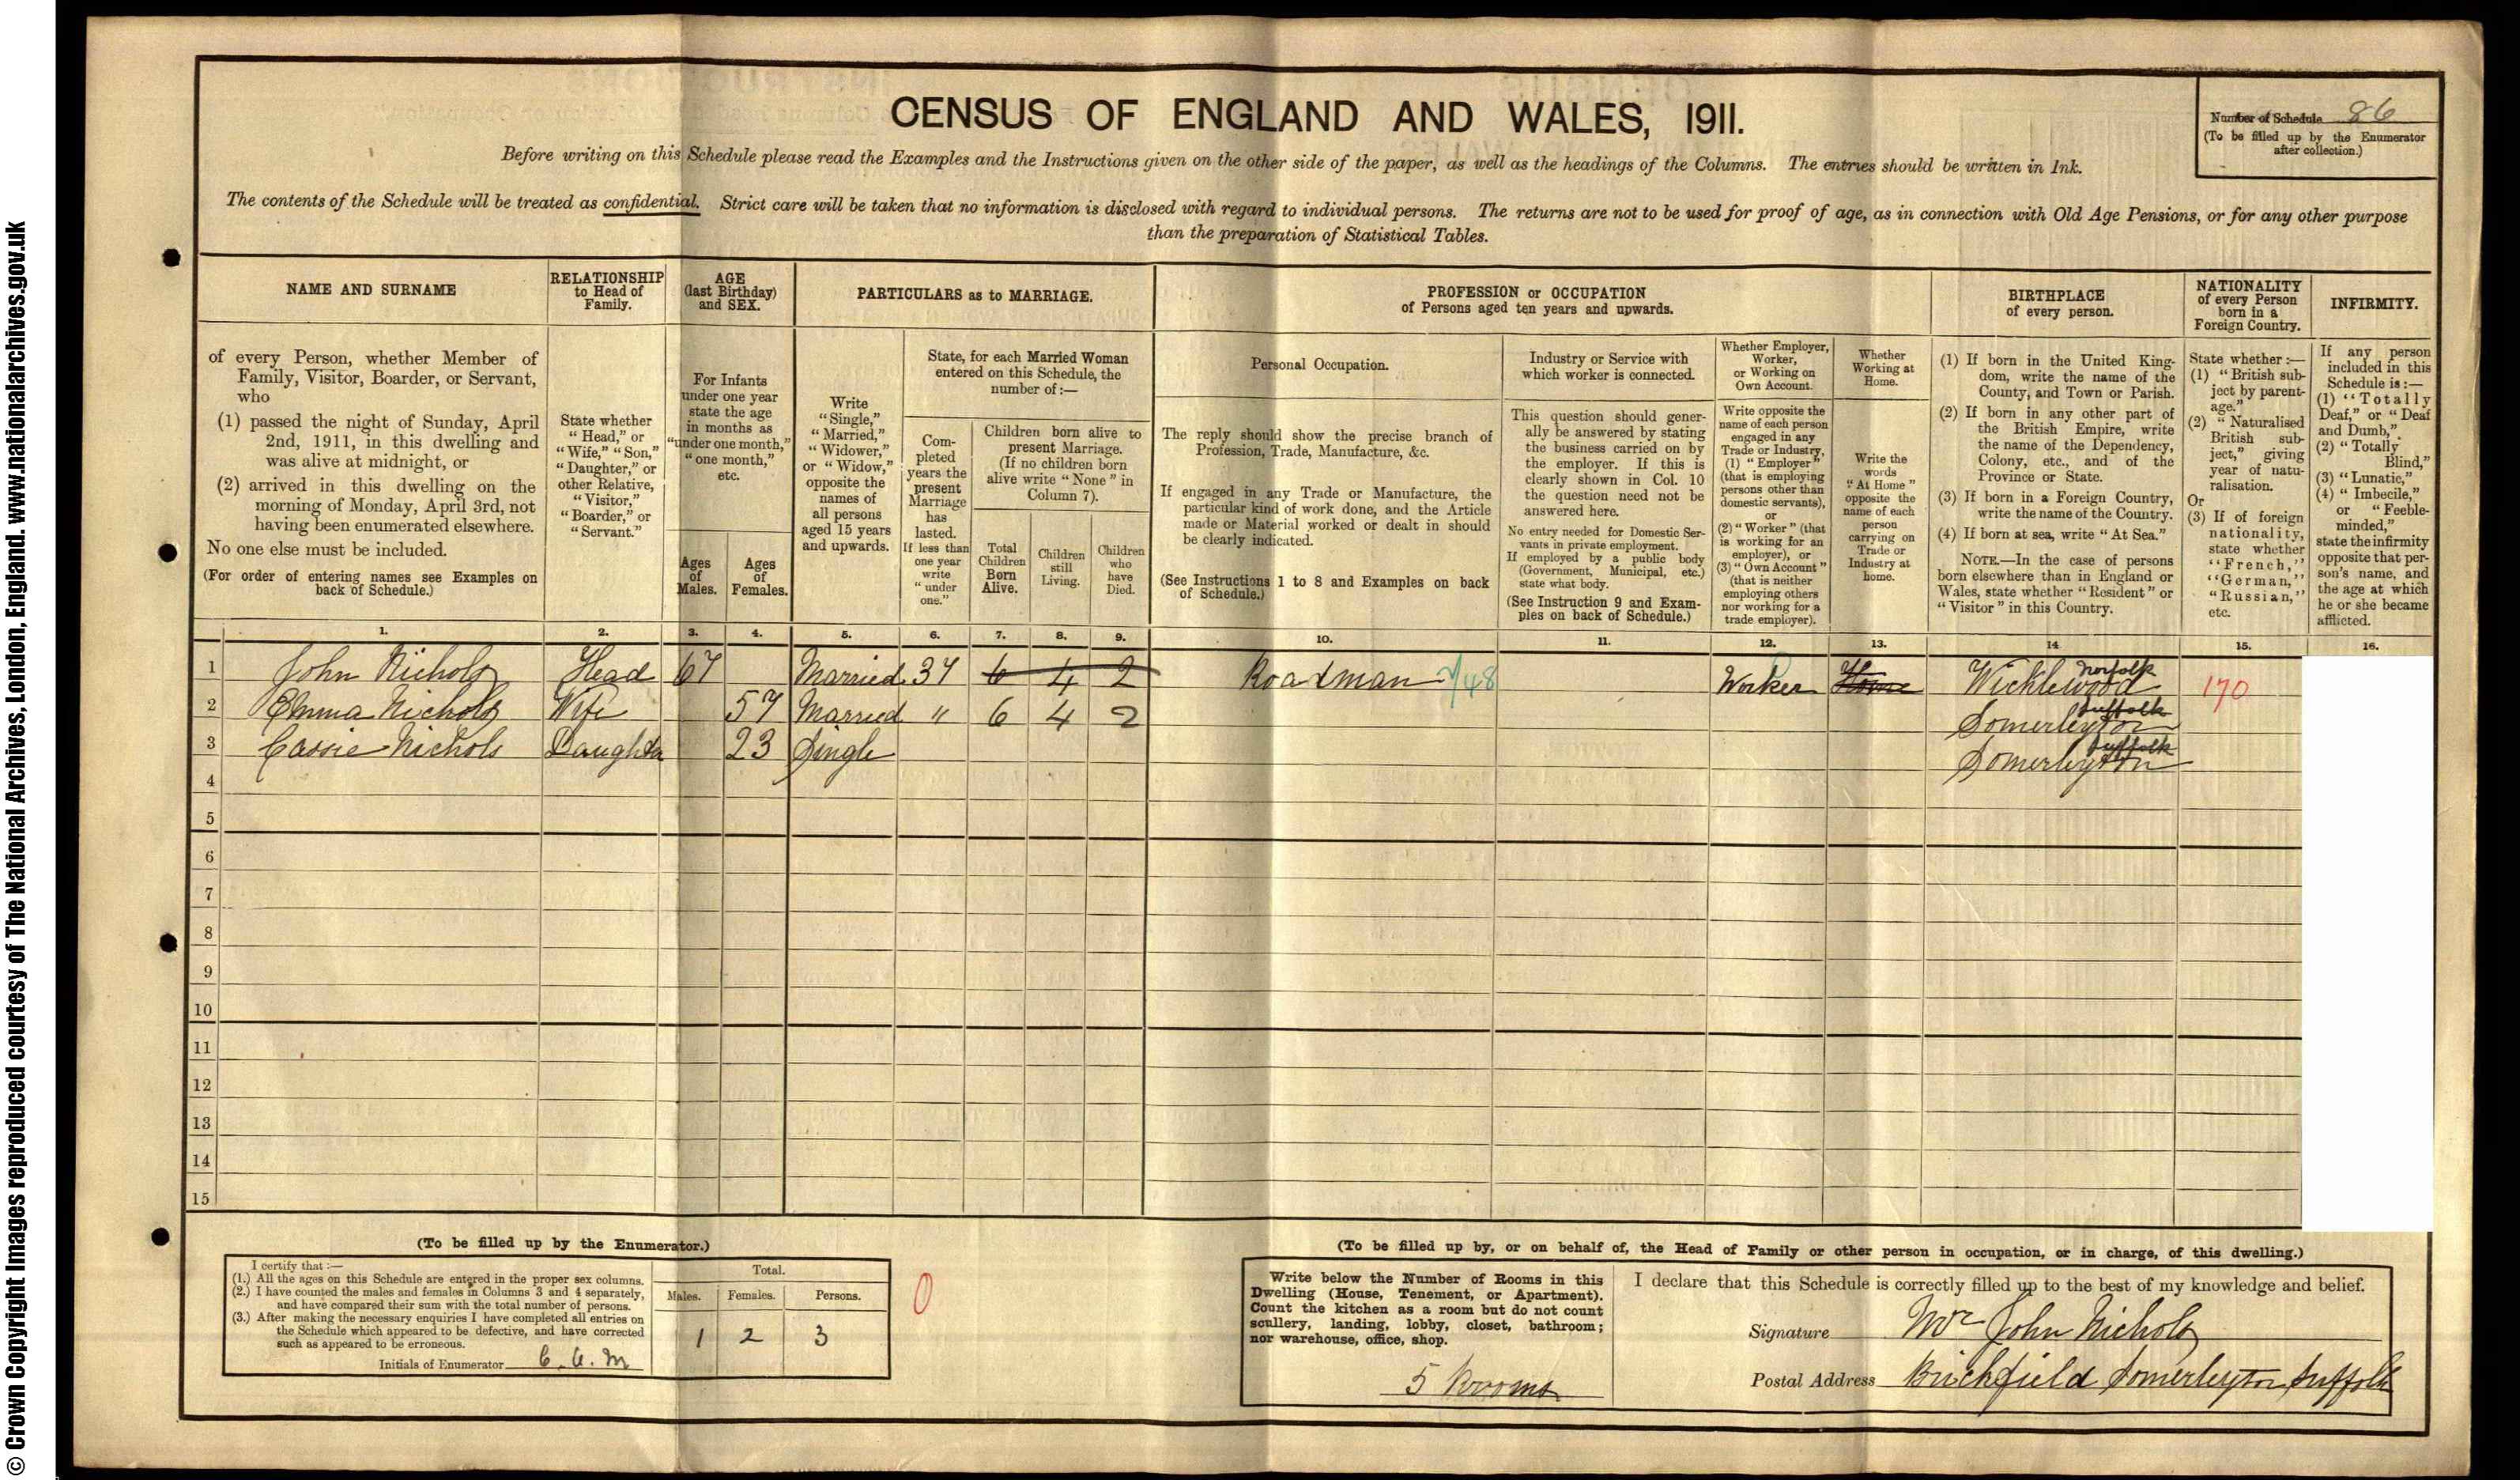 © Crown Copyright Images reproduced courtesy of The National Archives, London, England. www.nationalarchives.gov.uk
CENSUS OF ENGLAND AND WALES, 1911.
Number of Schedule 86
(To be filled up by the Enumerator
after collection.)
Before writing on this Schedule please read the Examples and the Instructions given on the other side of the paper, as well as the headings of the Columns. The entries should be written in Ink.
The contents of the Schedule will be treated as confidential. Strict care will be taken that no information is disclosed with regard to individual persons. The returns are not to be used for proof of age, as in connection with Old Age Pensions, or for any other purpose
than the preparation of Statistical Tables.
NAME AND SURNAME
of every Person, whether Member of
Family, Visitor, Boarder, or Servant,
who
(1) passed the night of Sunday, April
2nd, 1911, in this dwelling and
was alive at midnight, or
(2) arrived in this dwelling on the
morning of Monday, April 3rd, not
having been enumerated elsewhere.
No one else must be included.
(For order of entering names see Examples on
back of Schedule.)
RELATIONSHIP
to Head of
Family.
State whether
"Head," or
"Wife," "Son,"
"Daughter," or
other Relative,
"Visitor,"
"Boarder," or
"Servant."
AGE
(last Birthday)
and SEX.
For Infants
under one year
state the age
in months as
"under one month,"
"one month,"
etc.
Ages
of
Males.
Ages
of
Females.
PARTICULARS as to MARRIAGE.
Write
"Single,"
"Married,"
"Widower,"
or "Widow,"
opposite the
names of
all persons
aged 15 years
and upwards.
State, for each Married Woman
entered on this Schedule, the
number of:—
Com-
pleted
years the
present
Marriage
has
lasted.
If less than
one year
write
"under
one."
Children born alive to
present Marriage.
(If no children born
alive write "None" in
Column 7).
Total
Children
Born
Alive.
Children
still
Living.
Children
who
have
Died.
PROFESSION or OCCUPATION
of Persons aged ten years and upwards.
Personal Occupation.
The reply should show the precise branch of
Profession, Trade, Manufacture, &c.
If engaged in any Trade or Manufacture, the
particular kind of work done, and the Article
made or Material worked or dealt in should
be clearly indicated.
(See Instructions 1 to 8 and Examples on back
of Schedule.)
Industry or Service with
which worker is connected.
This question should gener-
ally be answered by stating
the business carried on by
the employer. If this is
clearly shown in Col. 10
the question need not be
answered here.
No entry needed for Domestic Ser-
vants in private employment.
If employed by a public body
(Government, Municipal, etc.)
state what body.
(See Instruction 9 and Exam-
ples on back of Schedule.)
Whether Employer,
Worker,
or Working on
Own Account.
Write opposite the
name of each person
engaged in any
Trade or Industry,
(1) "Employer"
(that is employing
persons other than
domestic servants),
or
(2) "Worker" (that
is working for an
employer), or
(3) "Own Account"
(that is neither
employing others
nor working for a
trade employer).
Whether
Working at
Home.
Write the
words
"At Home"
opposite the
name of each
person
carrying on
Trade or
Industry at
home.
BIRTHPLACE
of every person.
(1) If born in the United King-
dom, write the name of the
County, and Town or Parish.
(2) If born in any other part of
the British Empire, write
the name of the Dependency,
Colony, etc., and of the
Province or State.
(3) If born in a Foreign Country,
write the name of the Country.
(4) If born at sea, write "At Sea."
NOTE.—In the case of persons
born elsewhere than in England or
Wales, state whether "Resident" or
"Visitor" in this Country.
NATIONALITY
of every Person
born in a
Foreign Country.
State whether:—
(1) "British sub-
ject by parent-
age."
(2) "Naturalised
British sub-
ject," giving
year of natu-
ralisation.
Or
(3) If of foreign
nationality,
state whether
"French,"
"German,"
"Russian,"
etc.
INFIRMITY.
If any person
included in this
Schedule is:—
(1) "Totally
Deaf," or "Deaf
and Dumb,"
(2) "Totally
Blind,"
(3) "Lunatic,"
(4) "Imbecile,"
or "Feeble-
minded,"
state the infirmity
opposite that per-
son's name, and
the age at which
he or she became
afflicted.
1. 2. 3. 4. 5. 6. 7. 8. 9. 10. 11. 12. 13. 14. 15. 16.
1 John Nichols Head 67 Married 37 6 4 2 Roadman Worker Home Wicklewood Norfolk 170
2 Emma Nichols Wife 57 Married " 6 4 2 Somerleyton Suffolk
3 Cassie Nichols Daughter 23 Single Somerleyton Suffolk
4
5
6
7
8
9
10
11
12
13
14
15
(To be filled up by the Enumerator.)
I certify that:—
(1.) All the ages on this Schedule are entered in the proper sex columns.
(2.) I have counted the males and females in Columns 3 and 4 separately,
and have compared their sum with the total number of persons.
(3.) After making the necessary enquiries I have completed all entries on
the Schedule which appeared to be defective, and have corrected
such as appeared to be erroneous.
Initials of Enumerator
Total.
Males. Females. Persons.
1 2 3
0
(To be filled up by, or on behalf of, the Head of Family or other person in occupation, or in charge, of this dwelling.)
Write below the Number of Rooms in this
Dwelling (House, Tenement, or Apartment).
Count the kitchen as a room but do not count
scullery, landing, lobby, closet, bathroom;
nor warehouse, office, shop.
5 Rooms
I declare that this Schedule is correctly filled up to the best of my knowledge and belief.
Signature Mr John Nichols
Postal Address Birchfield Somerleyton Suffolk